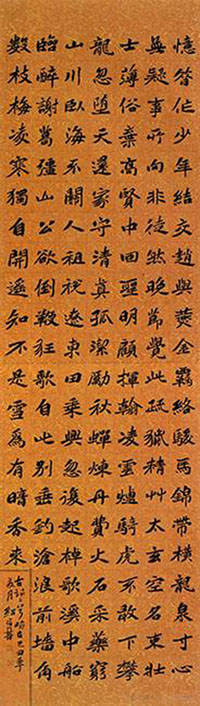 憶昔作少年結交趙與燕金羈絡駿馬錦帶橫龍泉寸心
無疑事所向非徒然晚節覺此疏獵精草太玄空名束壯
士薄俗棄高賢中回聖明顧揮翰凌雲煙騎虎不敢下攀
龍忽墮天還家守清真孤潔勵秋蟬煉丹費火石采藥窮
山川臥海不關人租稅遼東田乘興忽復起棹歌溪中船
臨醉謝葛彊山公欲倒鞭狂歌自此別垂釣滄浪前墙角
數枝梅凌寒獨自開遙知不是雪為有暗香來